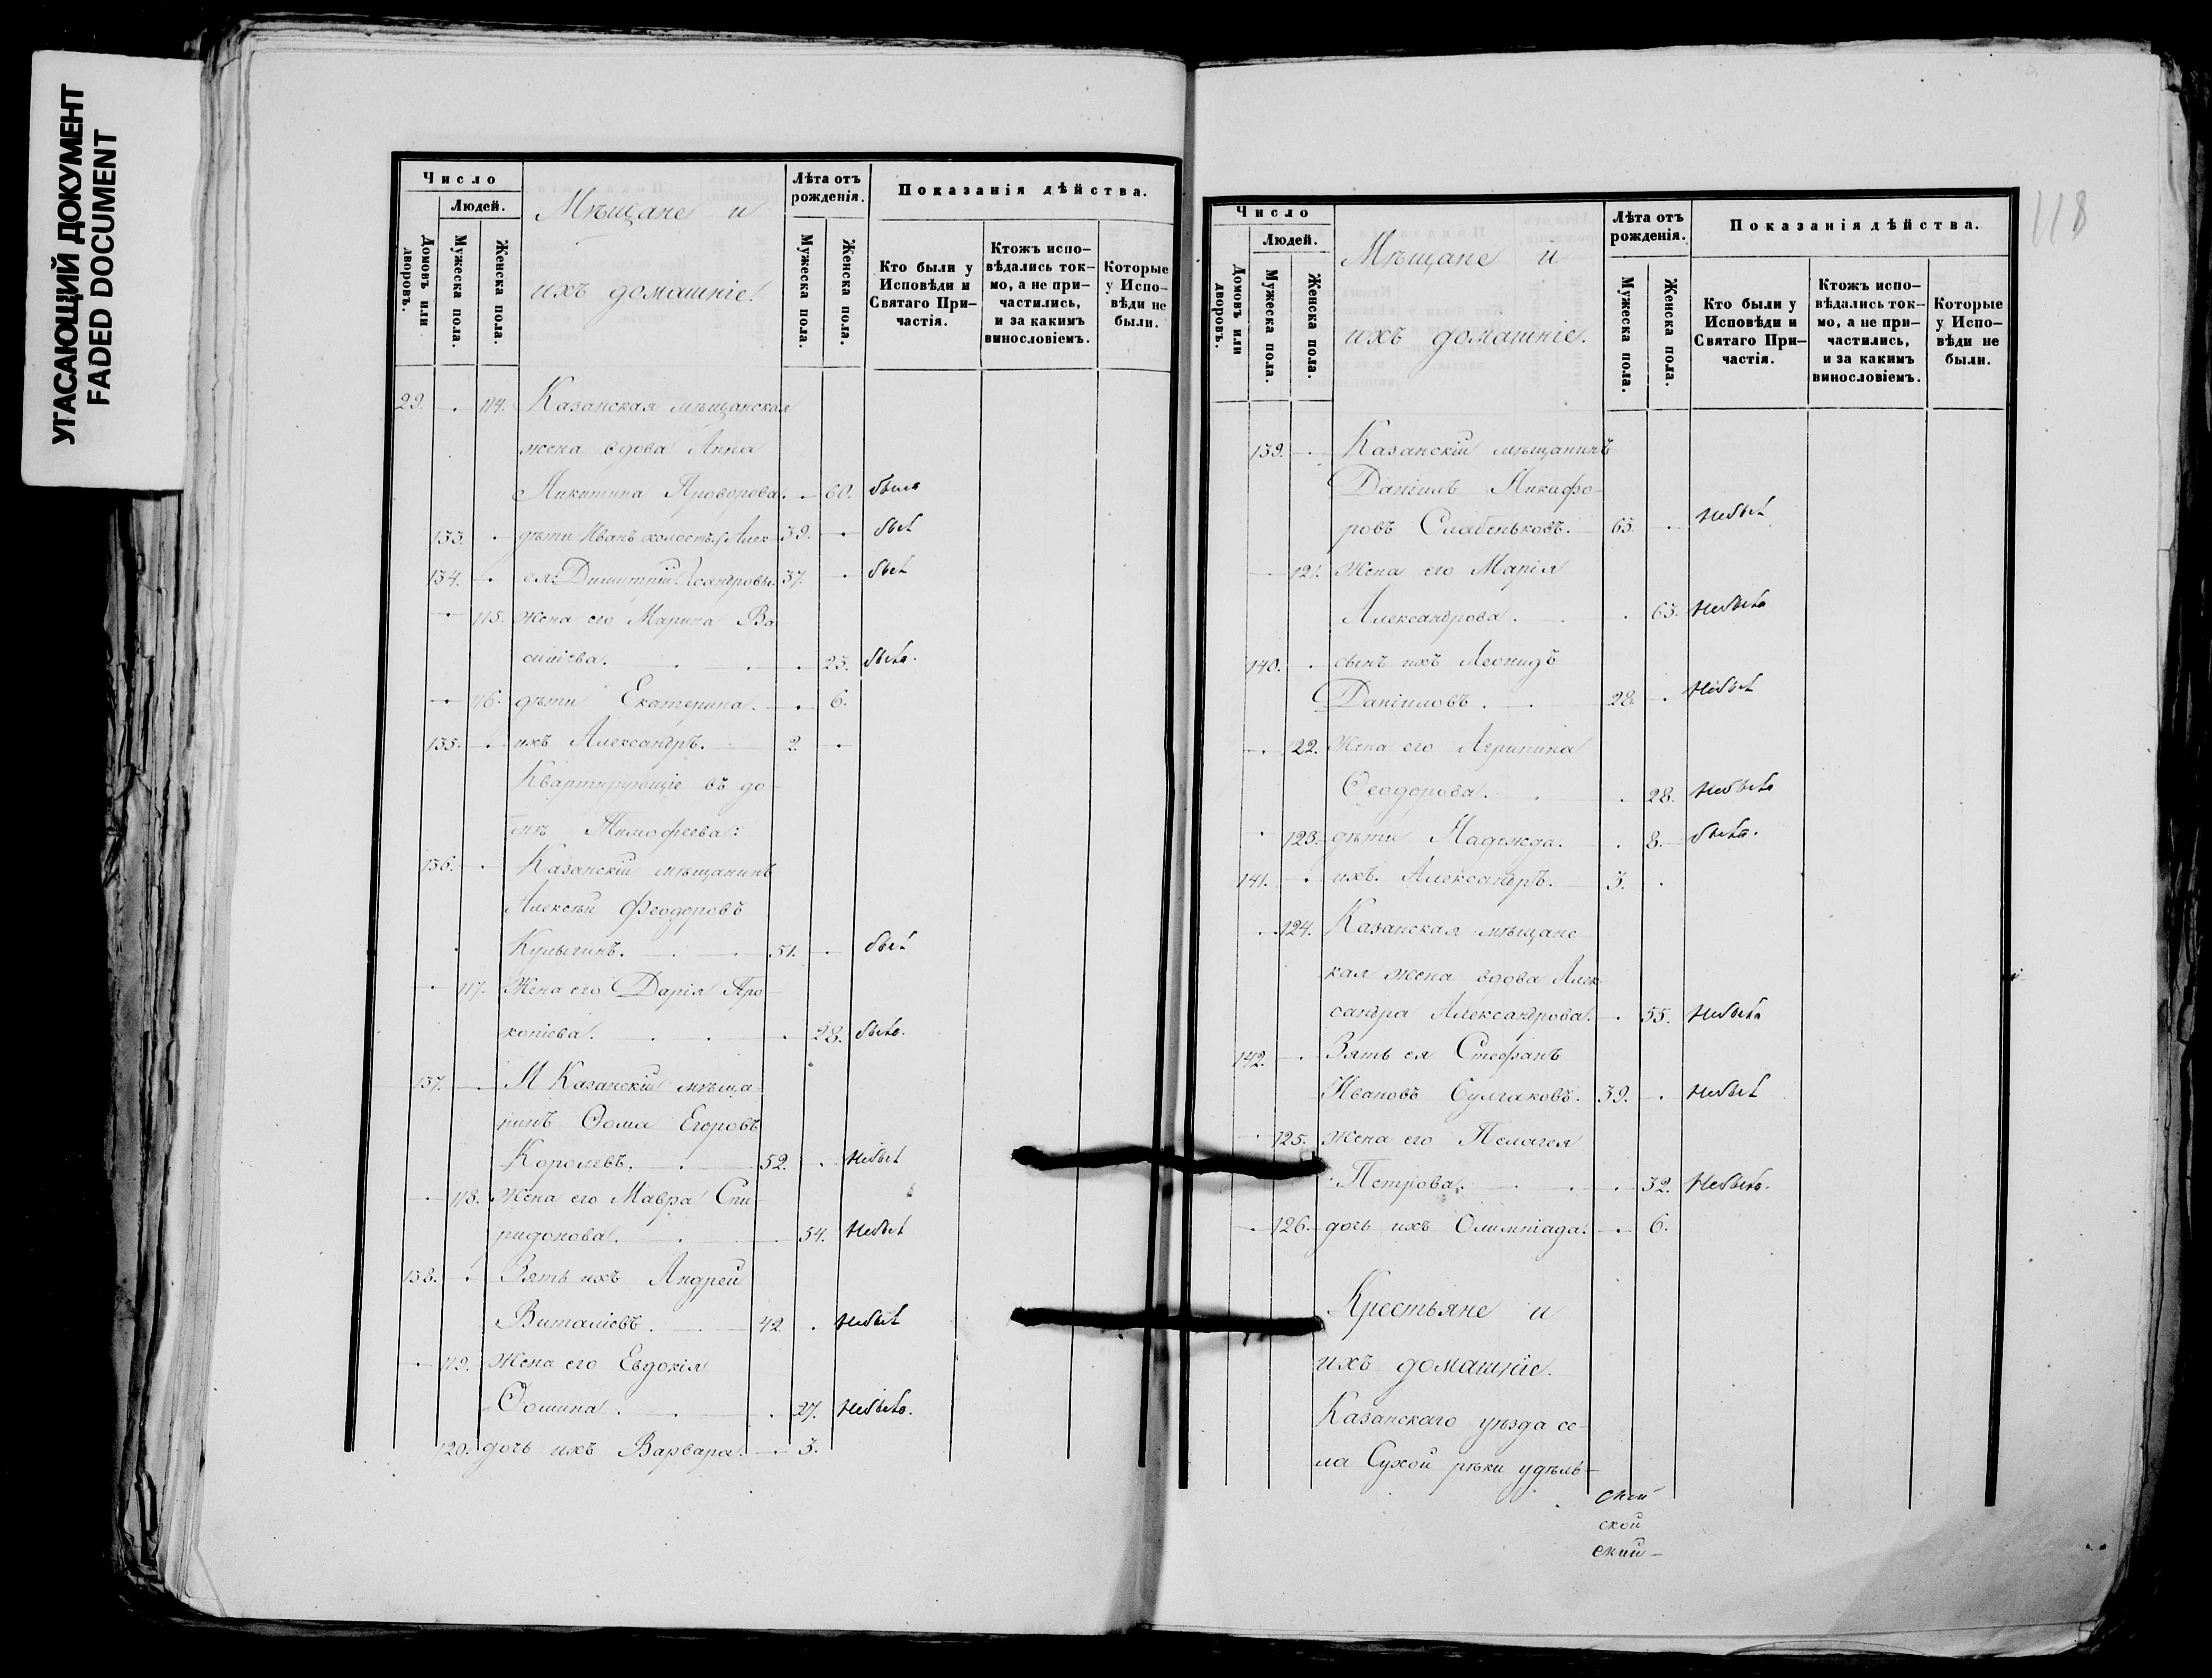 УГАСАЮЩИЙ ДОКУМЕНТ
FADED DOCUMENT
Число
Людей.
Домовъ или дворовъ.
Мужеска пола.
Женска пола.
Мѣщане и
ихъ домашніе.
Лѣта отъ
рожденія.
Мужеска пола.
Женска пола.
Показанія дѣйства.
Кто были у
Исповѣди и
Святаго При-
частія.
Ктожъ испо-
вѣдались ток-
мо, а не при-
частились,
и за какимъ
винословіемъ.
Которые
у Испо-
вѣди не
были.
29. 114. Казанская мѣщанская
жена вдова Анна
Никитина Проворова. 60. была
133. дѣти Иванъ холостъ Алек- 39. былъ
134. ея: Димитрій сандровы. 37. былъ
115. жена его Марина Ва
силіева. 23. была.
116. дѣти Екатерина. 6.
135. ихъ Александръ. 2.
Квартирующіе въ до-
мѣ Тимофеева:
136. Казанскій мѣщанинъ
Алексѣй Феодоровъ
51. былъ
117. Жена его Дарія Про-
копіева. 28. была.
137. Казанскій мѣща-
нинъ Ѳома Егоровъ
Королевъ. 52. Небылъ
118. Жена его Мавра Спи-
ридонова. 54. Небыл
138. Зять ихъ Андрей
Виталіевъ. 42. Небылъ
119. Жена его Евдокія
Ѳомина. 27. Небыла.
120. дочь ихъ Варвара. 3.
118
Число
Людей.
Домовъ или дворовъ.
Мужеска пола.
Женска пола.
Мѣщане и
ихъ домашніе.
Лѣта отъ
рожденія.
Мужеска пола.
Женска пола.
Показанія дѣйства.
Кто были у
Исповѣди и
Святаго При-
частія.
Ктожъ испо-
вѣдались ток-
мо, а не при-
частились,
и за какимъ
винословіемъ.
Которые
у Испо-
вѣди не
были.
139. Казанскій мѣщанинъ
Даніилъ Никифо-
ровъ Слабеньковъ. 63. Небылъ
121. Жена его Марія
Александрова. 63. Небыла
140. сынъ ихъ Леонидъ
Даніиловъ. 28. Небылъ
122. Жена его Агрипина
Ѳеодорова. 28. Небыла
123. дѣти Надежда. 8. была.
141. ихъ Александръ. 3.
124. Казанская мѣщанс-
кая жена вдова Алек-
сандра Александрова. 55. Небыла
142. Зять ея Стефанъ
Ивановъ Булгаковъ. 39. Небылъ
125. Жена его Пелагея
Петрова. 32. Небыла.
126. дочь ихъ Олимпіада. 6.
Крестьяне и
ихъ домашніе.
Казанскаго уѣзда се-
ла Сухой рѣки удѣль-
ской
ский